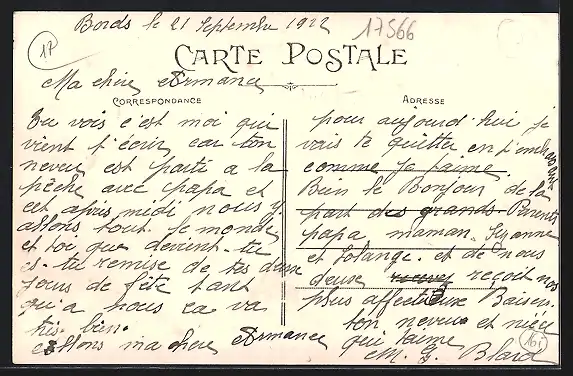 Bords le 21 Septembre 1922
17566
17
CARTE POSTALE
Ma chère Armance
CORRESPONDANCE
ADRESSE
Tu vois c'est moi qui
vient t'écrir car ton
neveu est parti a la
pêche avec papa et
cet après midi nous y
allons tout le monde
et toi que devient-tu
es-tu remise de tes deux
jours de fête tant
qu'a nous ca va
très bien.
allons ma chère Armance
pour aujourd'hui je
vais te quitter en t'embrassant
comme je t'aime.
Bien le Bonjour de la
part des grands-Parents
papa maman Suzanne
et Solange. et de nous
deux reçoit nos
plus affectueux Baisers.
ton neveu et nièce
qui t'aime
M. G. Blard